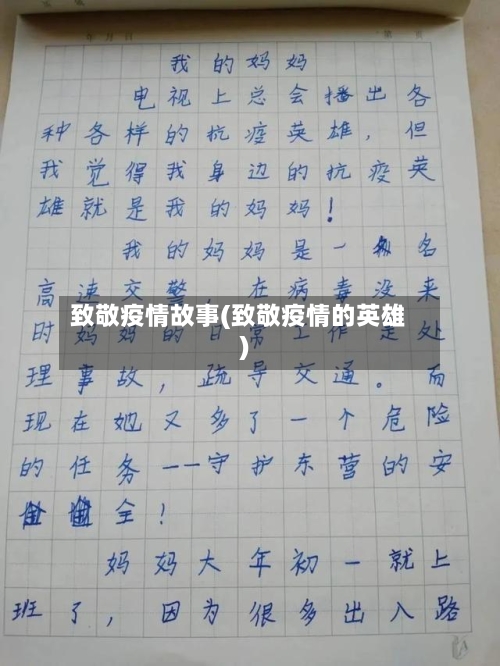 年 月 日
第 页
我的妈妈
电视上总会播出各
种各样的抗疫英雄，但
我觉得我身边的抗疫英
雄就是我的妈妈！
我的妈妈是一名
高速交警 在病毒没来
致敬疫情故事(致敬疫情的英雄
)
时妈妈的日常工作是处
理事故，疏导交通。而
现在她又多了一个危险
的任务——守护东营的安
全！
妈妈大年初一就上
班了，因为很多出入路